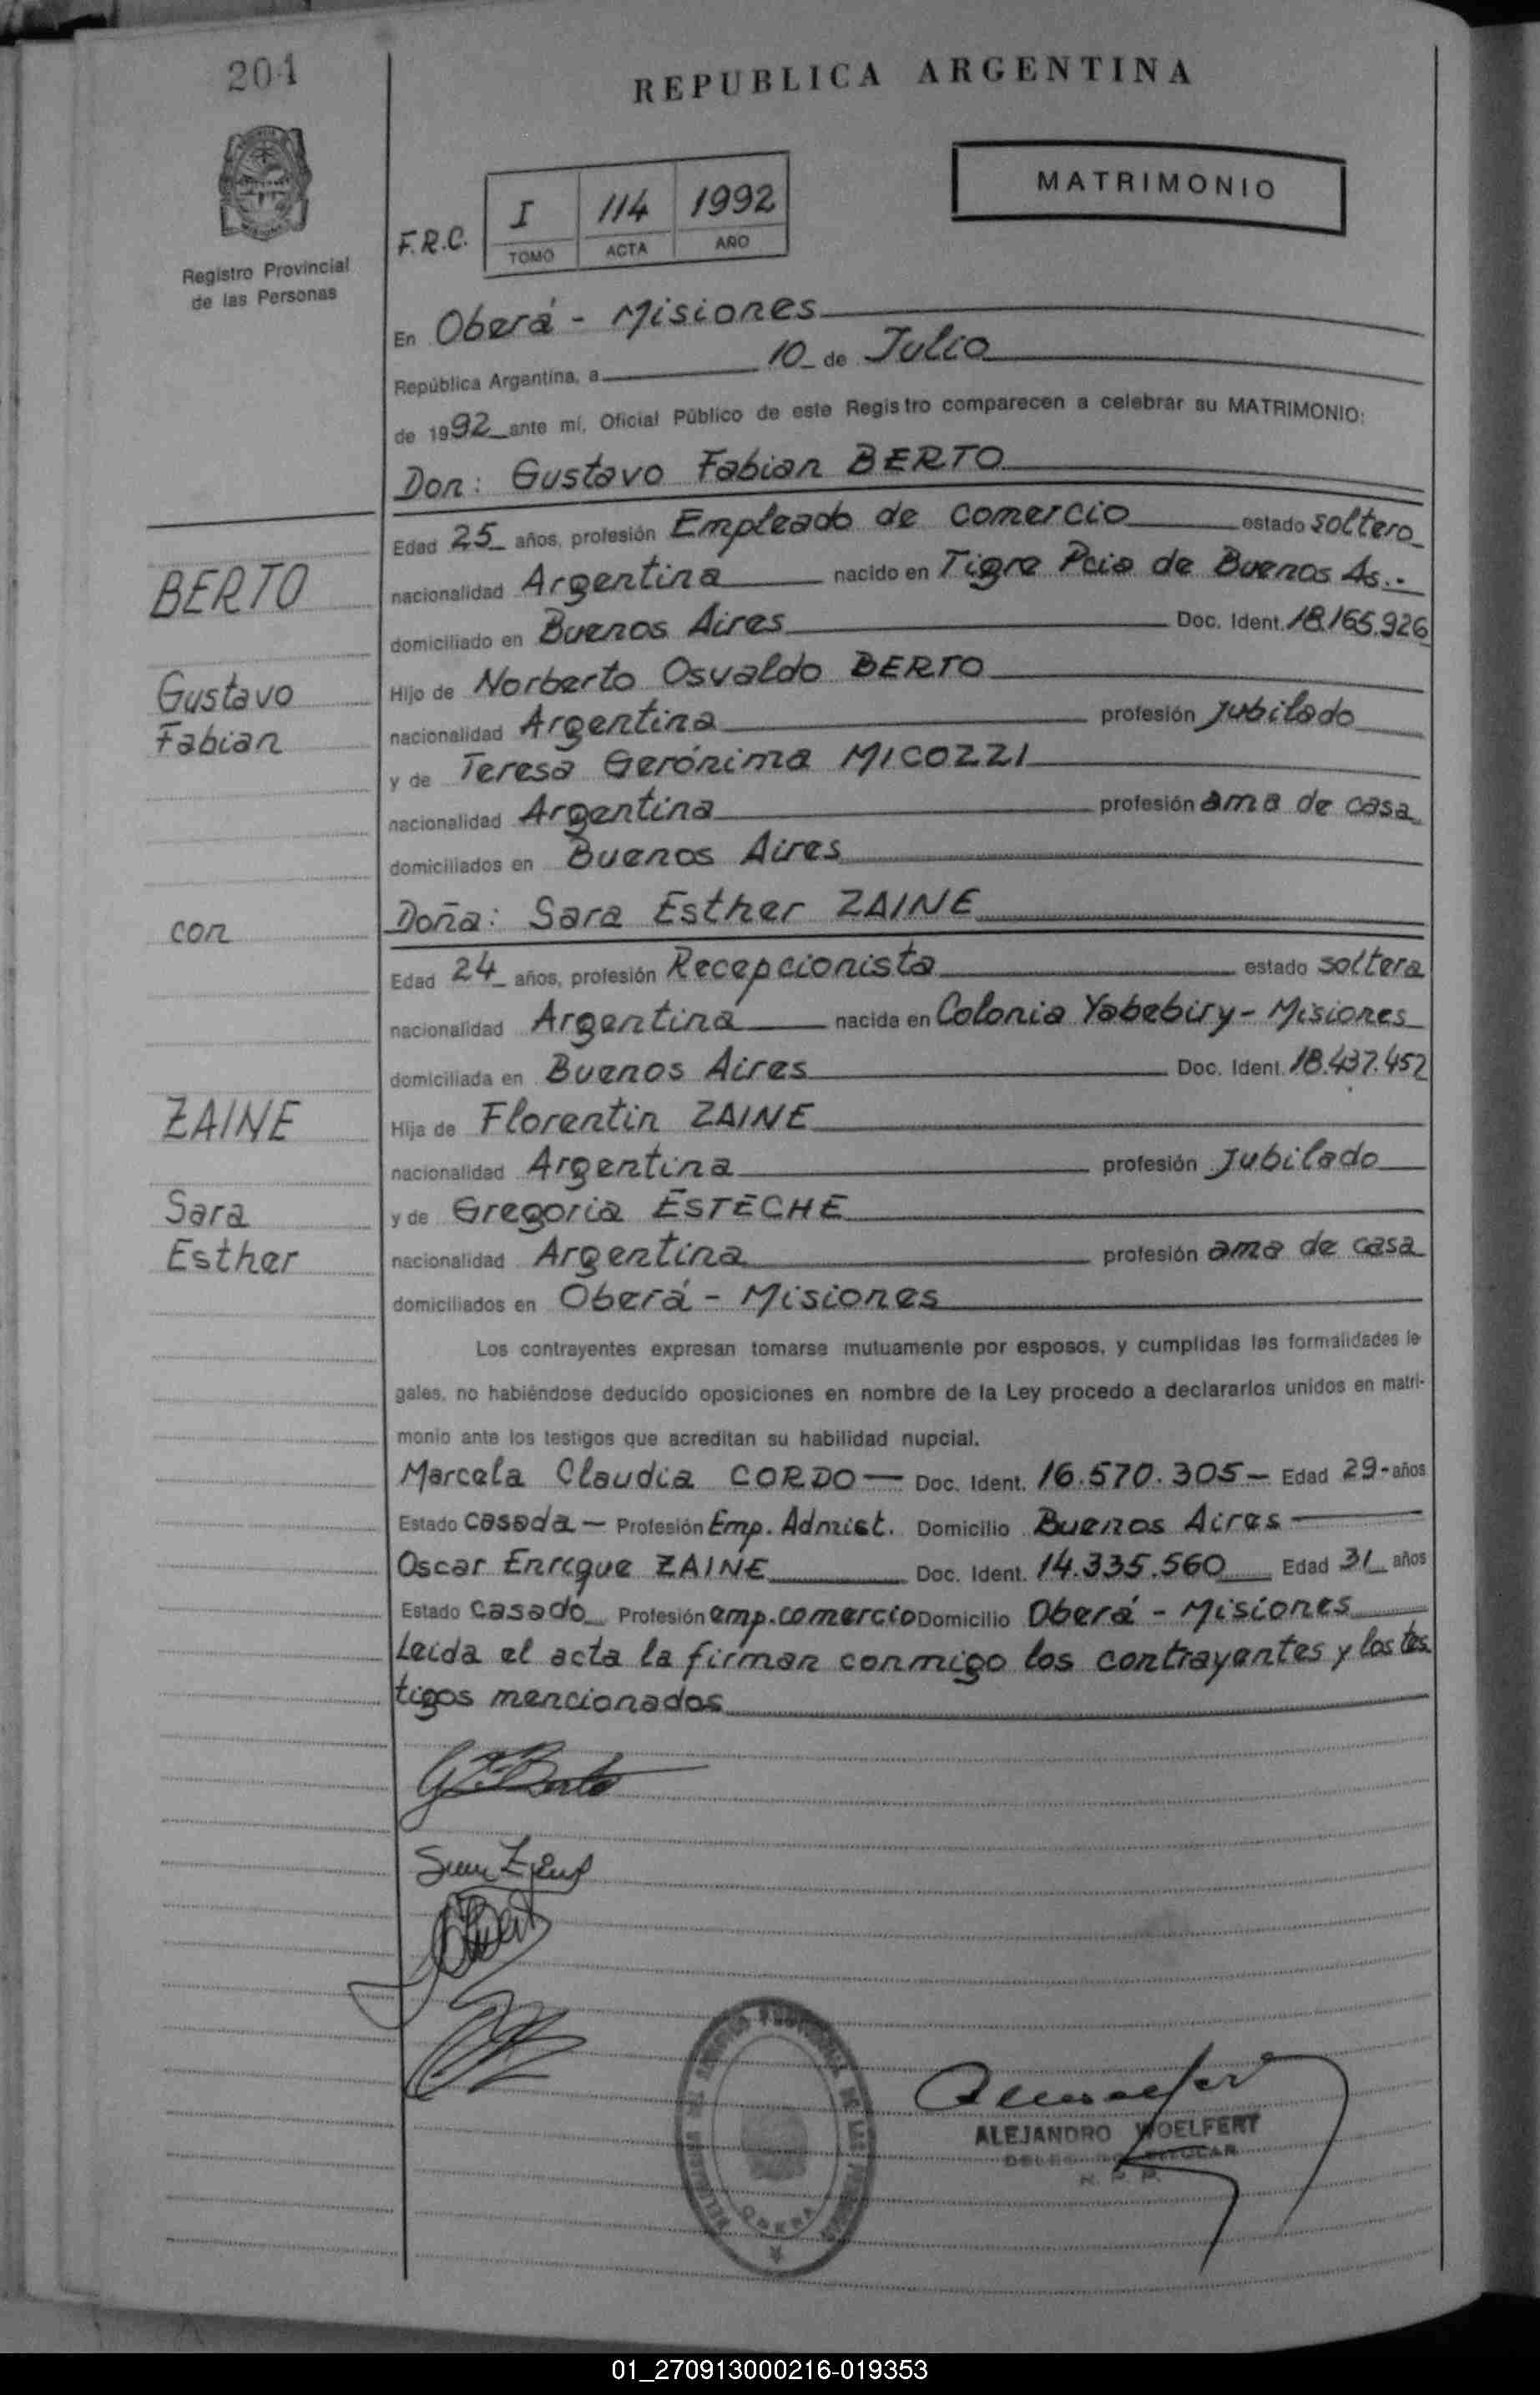 201
REPUBLICA ARGENTINA
MATRIMONIO
Registro Provincial
de las Personas
F.R.C.
I 114 1992
TOMO ACTA AÑO
En Oberá - Misiones
República Argentina, a 10 de Julio
de 1992 ante mí, Oficial Público de este Registro comparecen a celebrar su MATRIMONIO:
Don: Gustavo Fabian BERTO
Edad 25 años, profesión Empleado de comercio estado soltero
nacionalidad Argentina nacido en Tigre Pcia de Buenos As.-
domiciliado en Buenos Aires Doc. Ident. 18.165.926
Hijo de Norberto Osvaldo BERTO
nacionalidad Argentina profesión jubilado
y de Teresa Gerónima MICOZZI
nacionalidad Argentina profesión ama de casa
domiciliados en Buenos Aires
Doña: Sara Esther ZAINE
Edad 24 años, profesión Recepcionista estado soltera
nacionalidad Argentina nacida en Colonia Yabebiry - Misiones
domiciliada en Buenos Aires Doc. Ident. 18.437.452
Hija de Florentin ZAINE
nacionalidad Argentina profesión Jubilado
y de Gregoria ESTECHE
nacionalidad Argentina profesión ama de casa
domiciliados en Oberá - Misiones
Los contrayentes expresan tomarse mutuamente por esposos, y cumplidas las formalidades le-
gales, no habiéndose deducido oposiciones en nombre de la Ley procedo a declararlos unidos en matri-
monio ante los testigos que acreditan su habilidad nupcial.
Marcela Claudia CORDO — Doc. Ident. 16.570.305 - Edad 29 - años
Estado casada - Profesión Emp. Admist. Domicilio Buenos Aires
Oscar Enrique ZAINE Doc. Ident. 14.335.560 Edad 31 años
Estado casado Profesión emp. comercio Domicilio Oberá - Misiones
Leida el acta la firman conmigo los contrayentes y los tes
tigos mencionados
BERTO
Gustavo
Fabian
con
ZAINE
Sara
Esther
G.F. Berto
ALEJANDRO WOELFERT
TITULAR
R. P. P.
OBERA
01_270913000216-019353